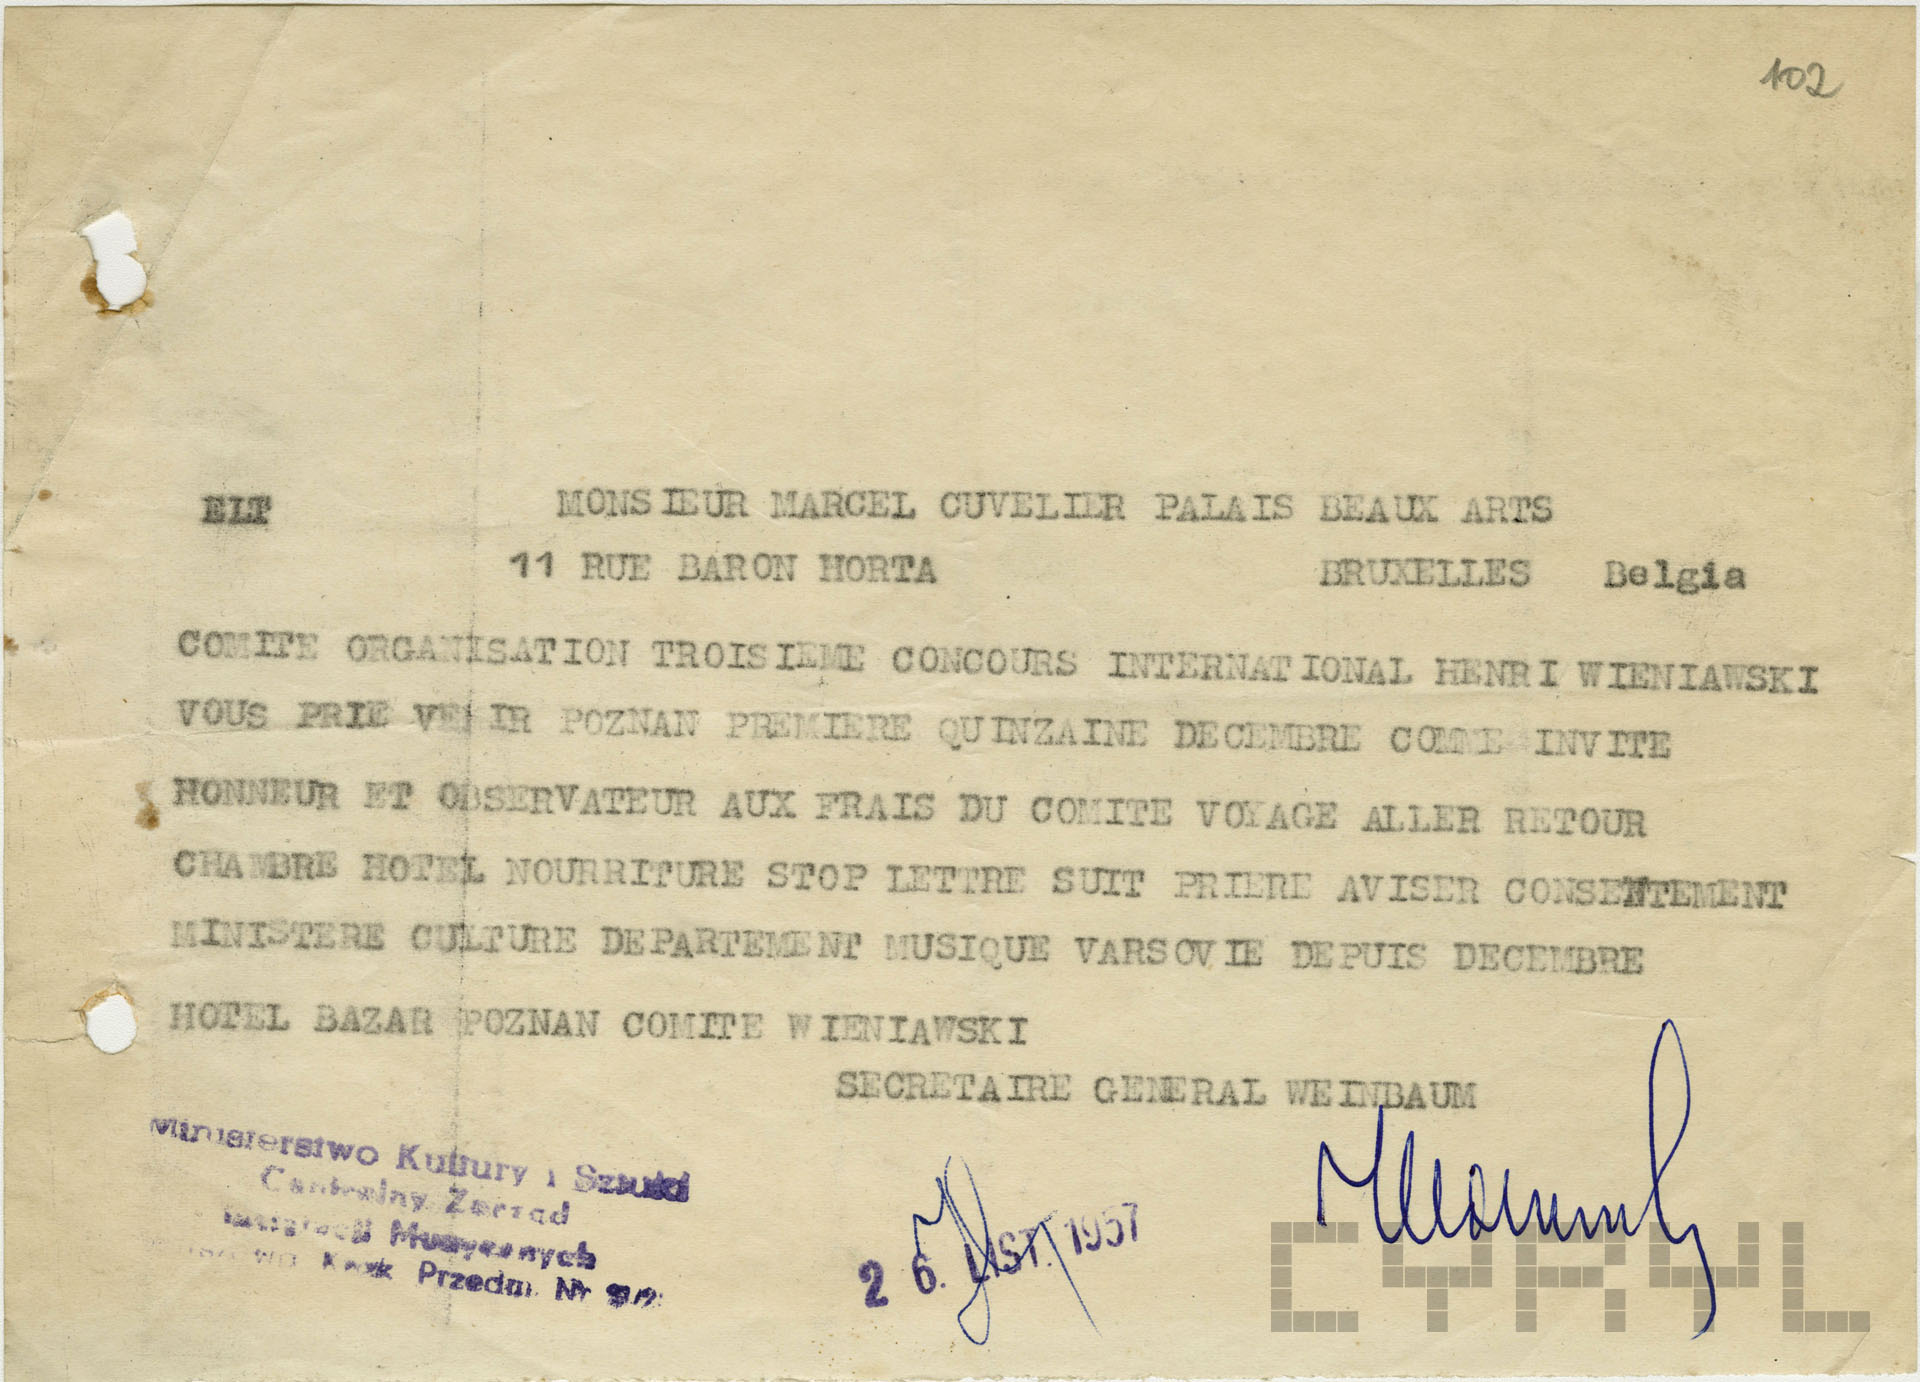 102
ELT MONSIEUR MARCEL CUVELIER PALAIS BEAUX ARTS
11 RUE BARON HORTA BRUXELLES Belgia
COMITE ORGANISATION TROISIEME CONCOURS INTERNATIONAL HENRI WIENIAWSKI
VOUS PRIE VENIR POZNAN PREMIERE QUINZAINE DECEMBRE COMME INVITE
HONNEUR ET OBSERVATEUR AUX FRAIS DU COMITE VOYAGE ALLER RETOUR
CHAMBRE HOTEL NOURRITURE STOP LETTRE SUIT PRIERE AVISER CONSENTEMENT
MINISTERE CULTURE DEPARTEMENT MUSIQUE VARSOVIE DEPUIS DECEMBRE
HOTEL BAZAR POZNAN COMITE WIENIAWSKI
SECRETAIRE GENERAL WEINBAUM
Ministerstwo Kultury i Sztuki
Centralny Zarząd
Muzycznych
Przedm. Nr
26. LIST. 1957
CYRYL